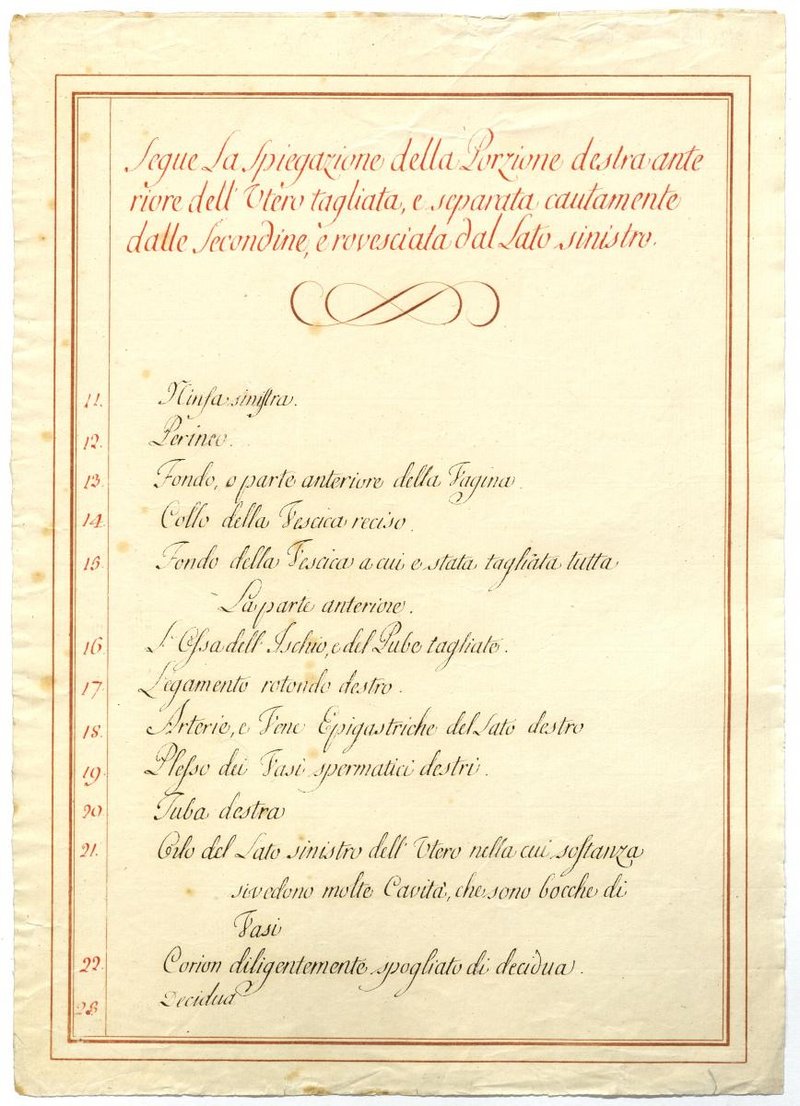 Segue La Spiegazione della Porzione destra ante
riore dell' Utero tagliata, e separata cautamente
dalle Secondine, e rovesciata dal Lato sinistro.
11. Ninfa sinistra.
12. Perineo.
13. Fondo, o parte anteriore della Vagina.
14 Collo della Vescica reciso.
15. Fondo della Vescica a cui e stata tagliata tutta
La parte anteriore.
16 L' Ossa dell' Ischio, e del Pube tagliate.
17. Legamento rotondo destro.
18. Arterie, e Vene Epigastriche del Lato destro
19. Plesso dei Vasi spermatici destri.
20 Tuba destra
21. Orlo del Lato sinistro dell' Utero nella cui sostanza
si vedono molte Cavità, che sono bocche di
Vasi
22. Corion diligentemente spogliato di decidua.
23. Decidua